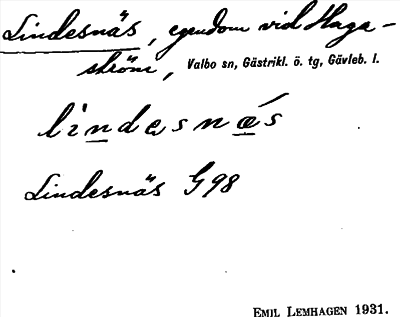 Lindesnäs, egendom vid Haga-
ström, Valbo sn, Gästrikl. ö. tg, Gävleb. l.
lindesnæ´s
Lindesnäs G98
EMIL LEMHAGEN 1931.